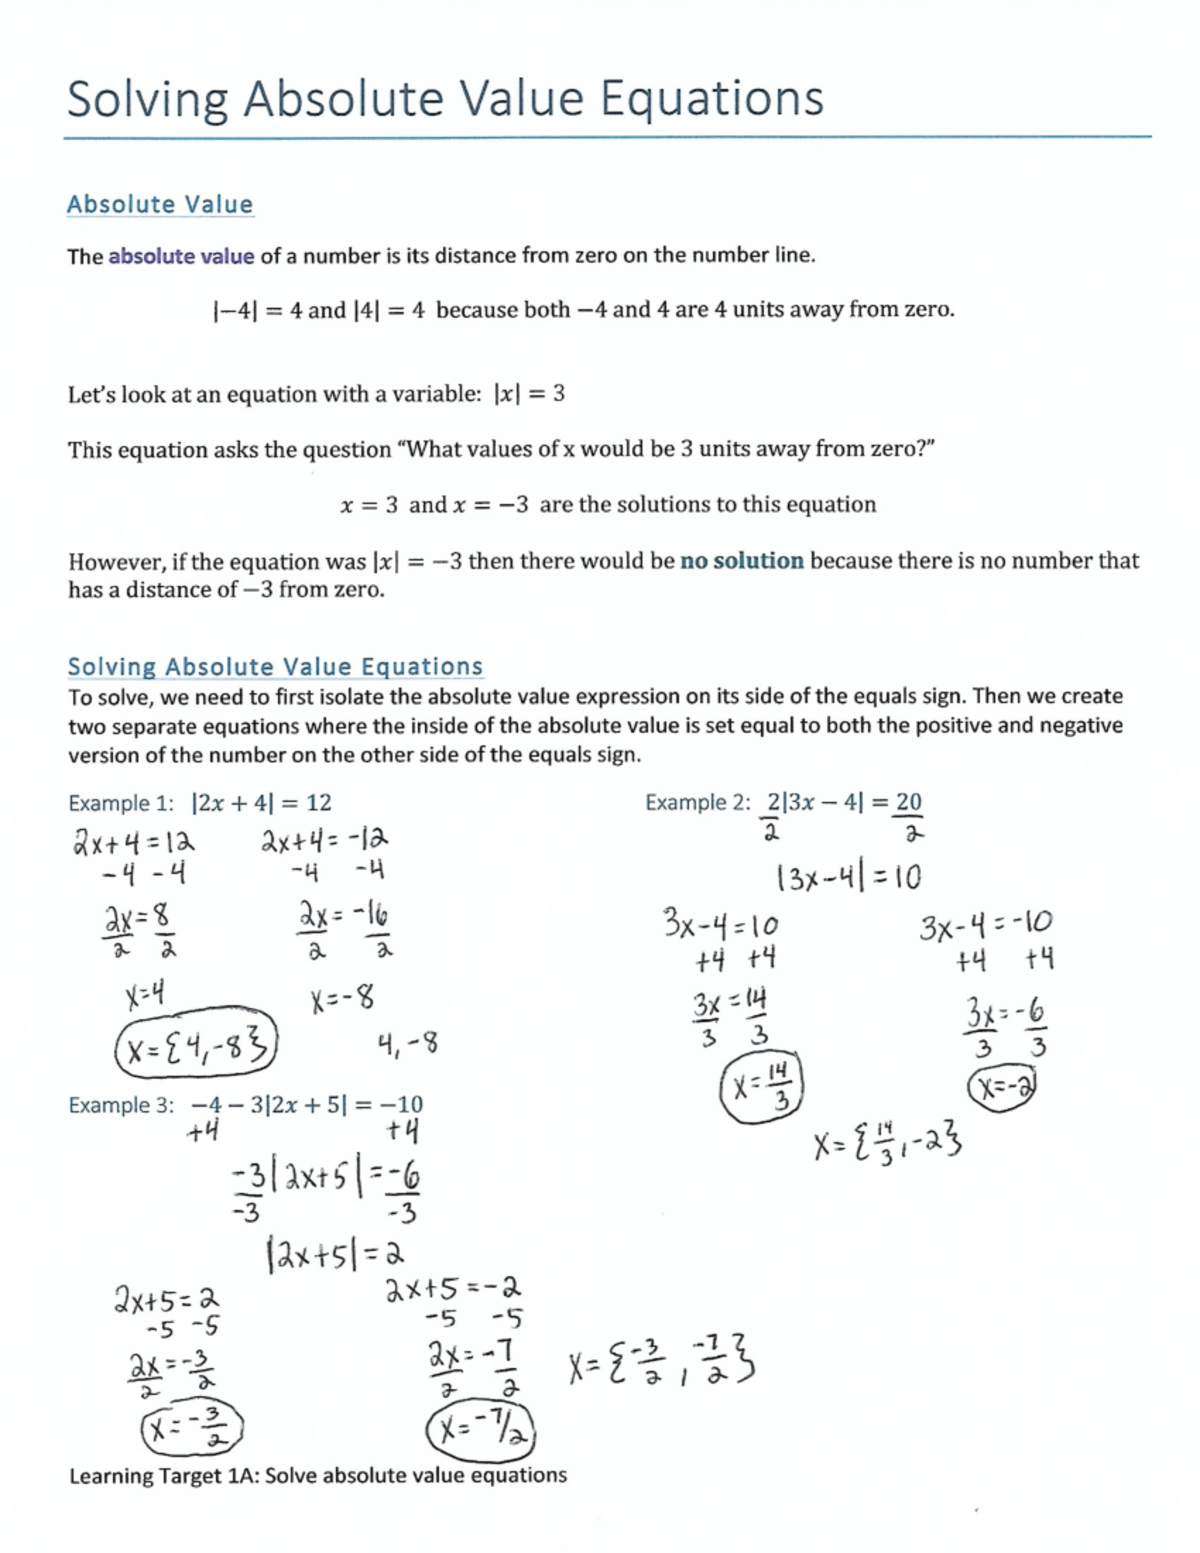 Solving Absolute Value Equations
Absolute Value
The absolute value of a number is its distance from zero on the number line.
|−4| = 4 and |4| = 4 because both −4 and 4 are 4 units away from zero.
Let's look at an equation with a variable: |x| = 3
This equation asks the question “What values of x would be 3 units away from zero?”
x = 3 and x = −3 are the solutions to this equation
However, if the equation was |x| = −3 then there would be no solution because there is no number that
has a distance of −3 from zero.
Solving Absolute Value Equations
To solve, we need to first isolate the absolute value expression on its side of the equals sign. Then we create
two separate equations where the inside of the absolute value is set equal to both the positive and negative
version of the number on the other side of the equals sign.
Example 1: |2x + 4| = 12
2x+4=12 2x+4=-12
-4 -4 -4 -4
2x=8 2x=-16
2 2 2 2
x=4 x=-8
x={4,-8} 4,-8
Example 2: 2|3x − 4| = 20
2 2
|3x-4|=10
3x-4=10 3x-4=-10
+4 +4 +4 +4
3x=14 3x=-6
3 3 3 3
x=14/3 x=-2
x={14/3,-2}
Example 3: −4 − 3|2x + 5| = −10
+4 +4
-3|2x+5|=-6
-3 -3
|2x+5|=2
2x+5=2 2x+5=-2
-5 -5 -5 -5
2x=-3 2x=-7
2 2 2 2
x=-3/2 x=-7/2
x={-3/2,-7/2}
Learning Target 1A: Solve absolute value equations